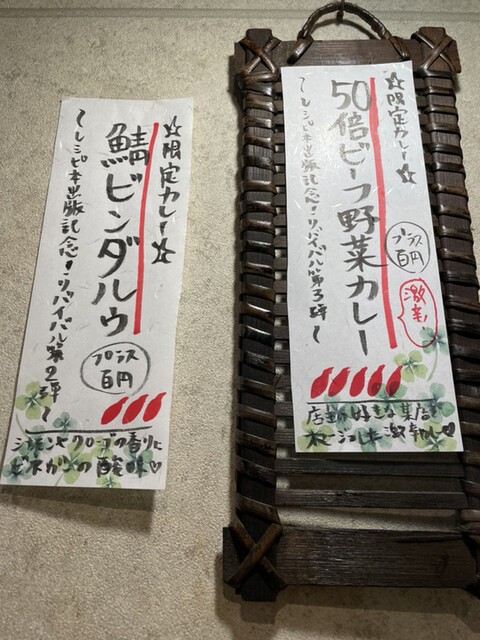 ☆限定カレー☆
50倍ビーフ野菜カレー
プラス
百円
激辛
〜レシピ本出版記念!リバイバル第3弾〜
店主の好きな某店を
オマージュした激辛カレー♡
☆限定カレー☆
鯖ビンダルウ
プラス
百円
〜レシピ本出版記念!リバイバル第2弾〜
シナモンとクローブの香りに
ビネガーの酸味♡